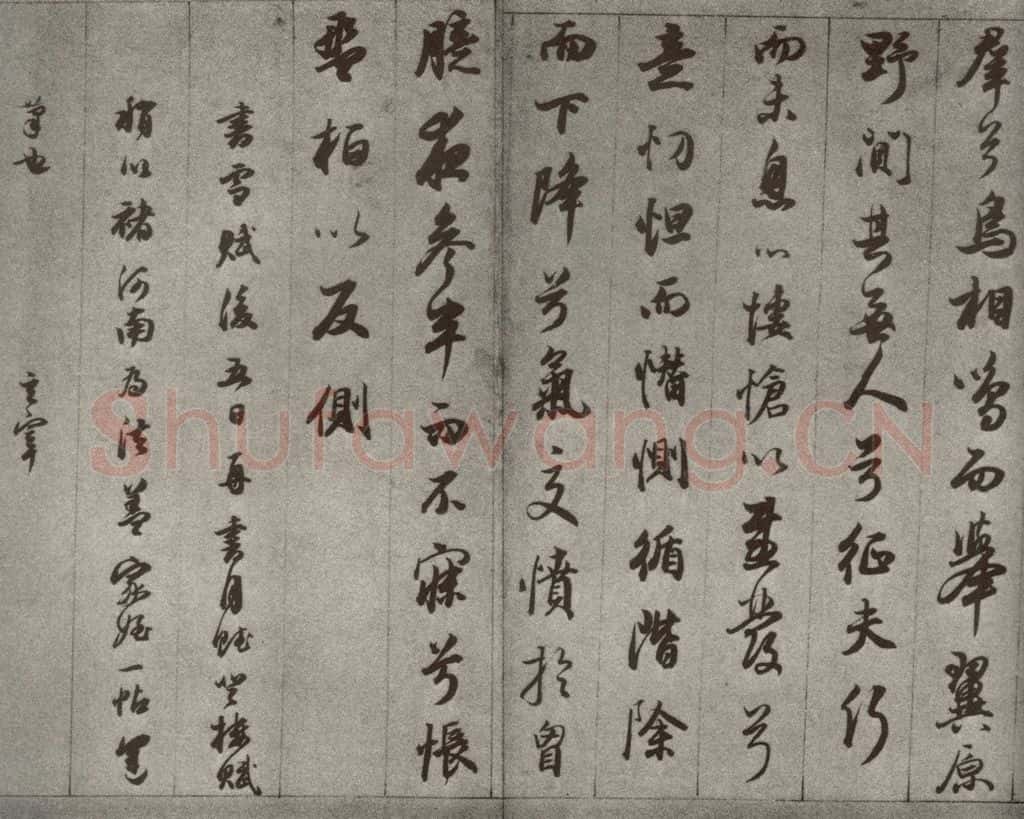 羣兮鳥相鳴而舉翼原
野闃其無人兮征夫行
而未息心悽愴以感發兮
意忉怛而憯惻循階除
而下降兮氣交憤於胷
臆夜參半而不寐兮悵
盤桓以反側
書雪賦後五日再書月賦登樓賦
稍以褚河南為法蓋家姪一帖
筆也 玄宰
Shufawang.CN